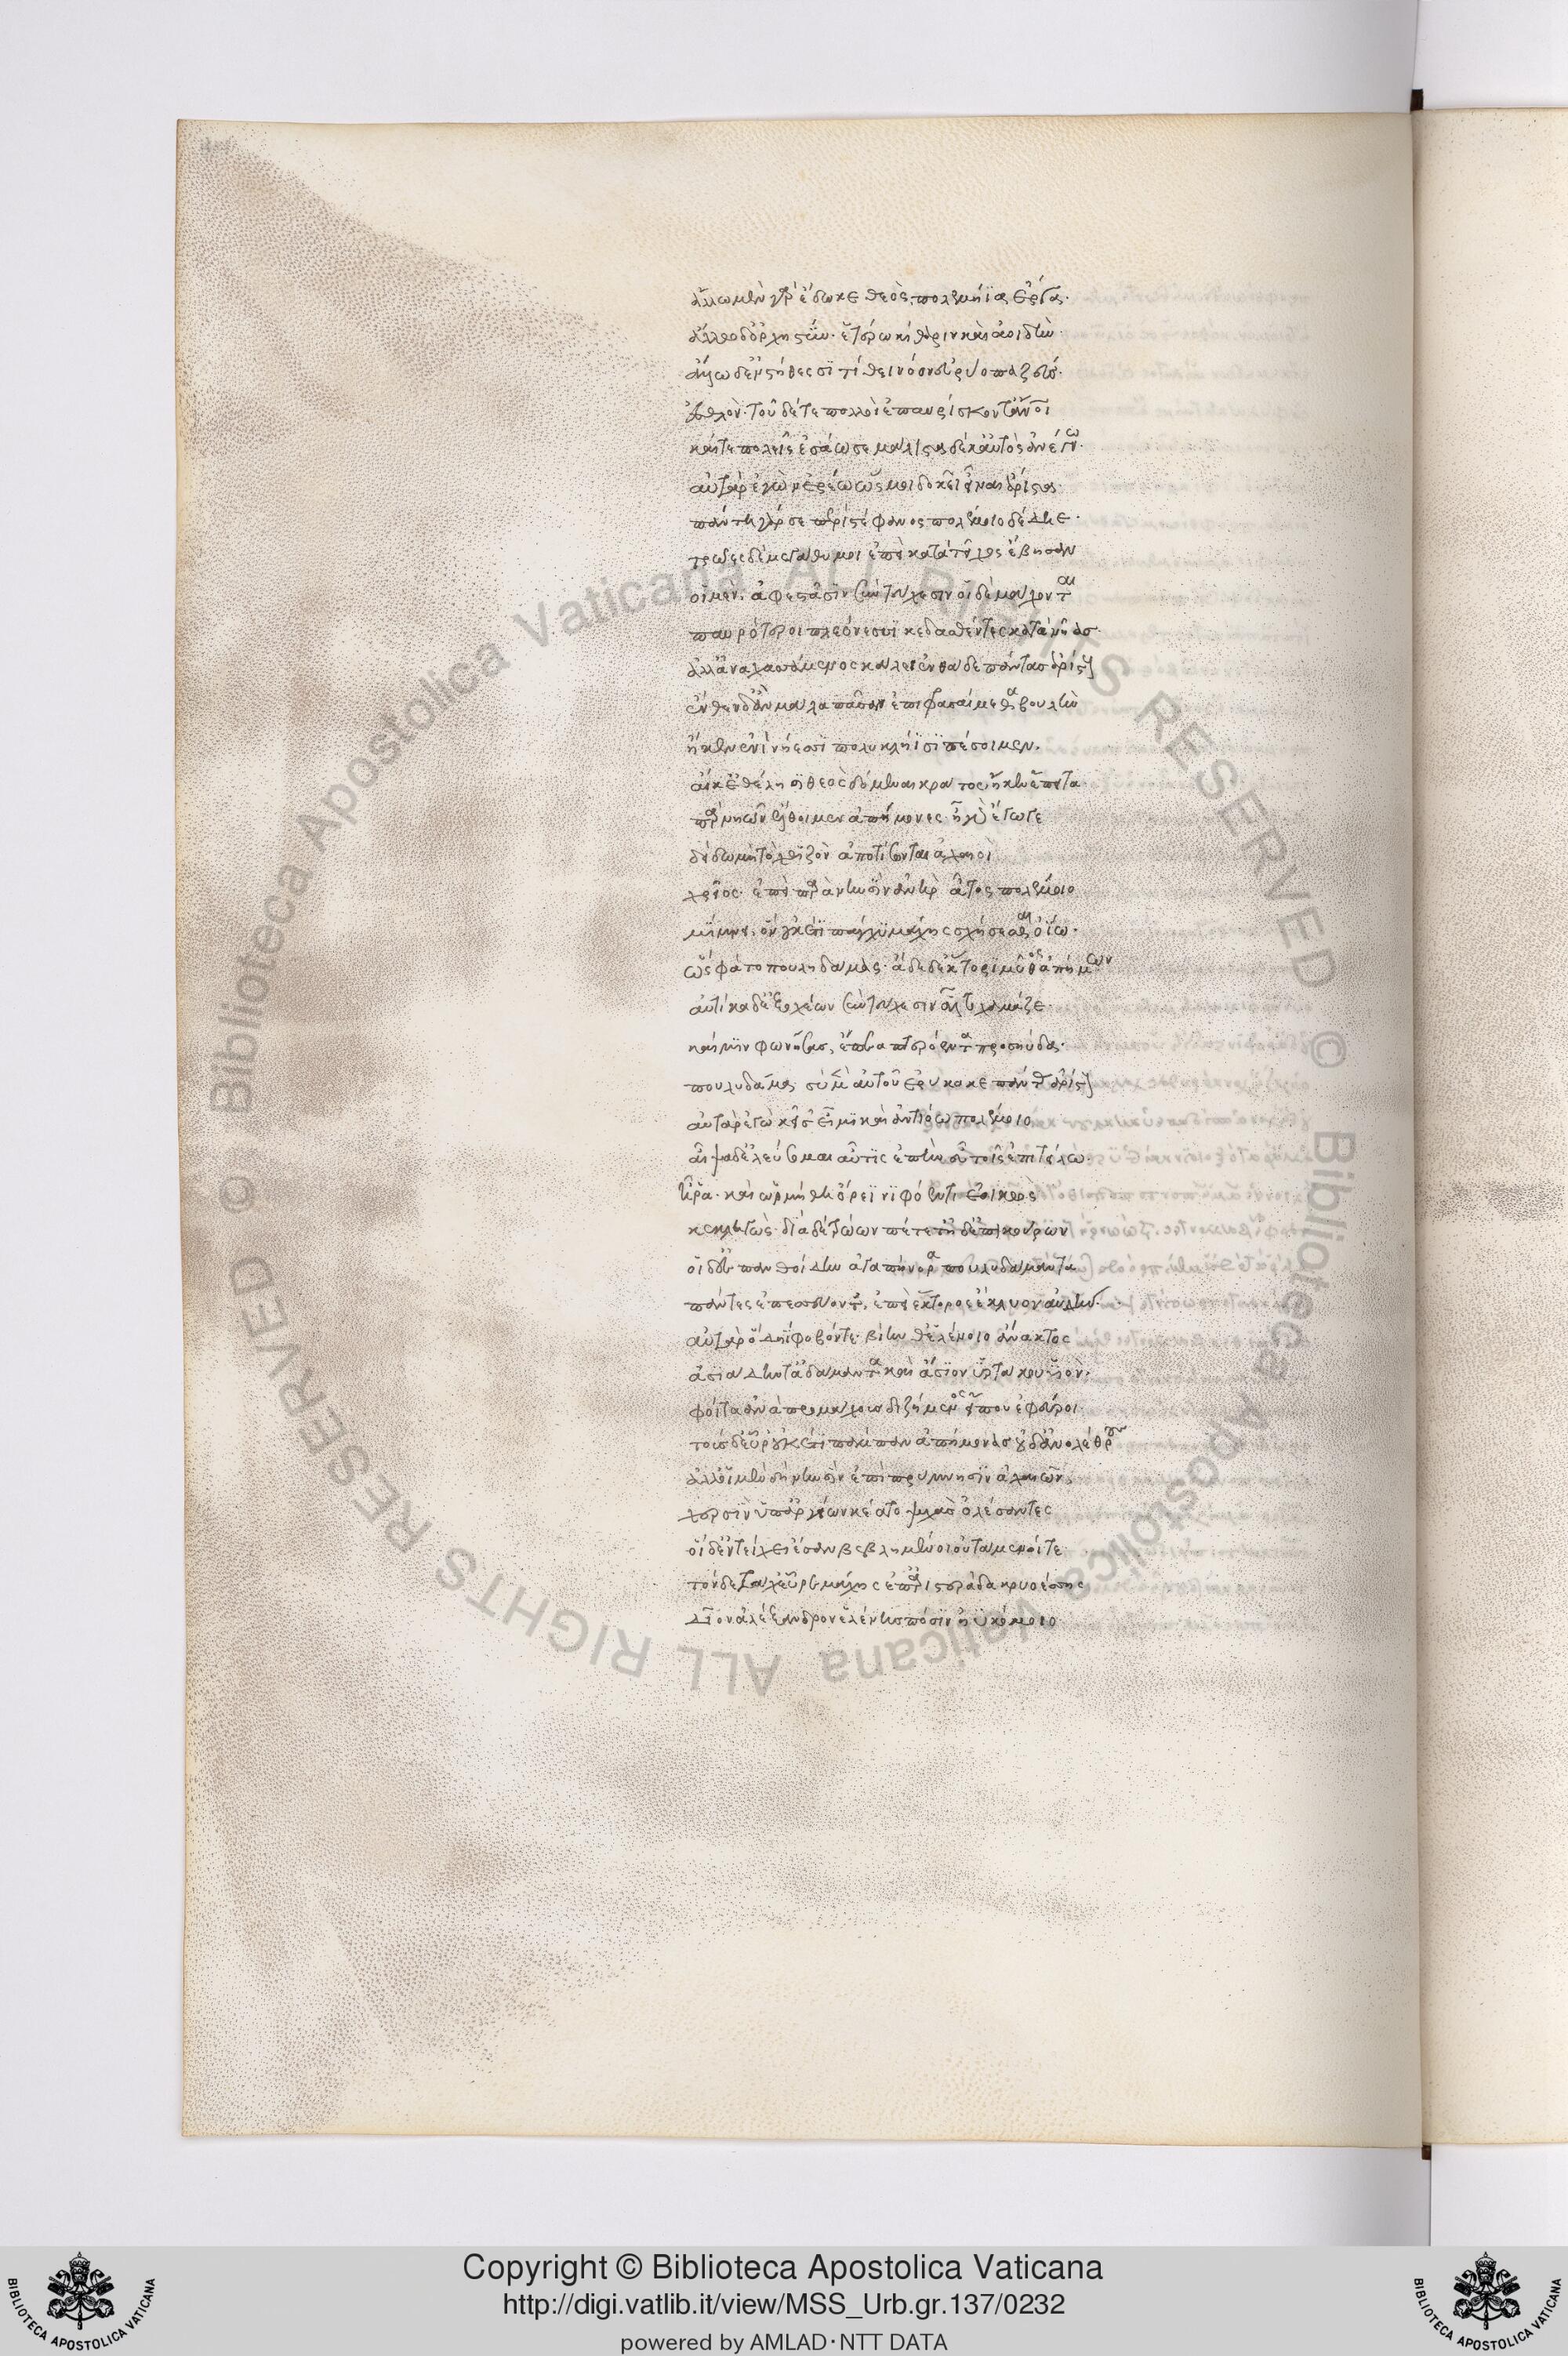 ἄλλω μὲν γὰρ ἔδωκε θεὸς, πολεμήϊα ἔργα.
ἄλλω δ' ὀρχηστύν. ἑτέρω κίθαριν καὶ ἀοιδήν.
ἄλλω δ' ἐν στήθεσσι τίθει νόον εὐρύοπα ζεύς.
ἐσθλόν. τοῦ δέ τε πολλοὶ ἐπαυρίσκοντ' ἄνθρωποι
καί τε πολεῖς ἐσάωσε μάλιστα δὲ καὐτὸς ἀνέγνω.
αὐτὰρ ἐγὼν ἐρέω ὥς μοι δοκεῖ εἶναι ἄριστα.
πάντη γάρ σε περὶ στέφανος πολέμοιο δέδηε.
τρῶες δὲ μεγάθυμοι ἐπεὶ κατὰ τεῖχος ἔβησαν
οἱ μὲν. ἀφεστᾶσιν σὺν τεύχεσιν οἱ δὲ μάχονται
παυρότεροι πλεόνεσσι κεδασθέντες κατὰ νῆας.
ἀλλ' ἀναχασσάμενος κάλει ἐνθάδε πάντας ἀρίστους
ἔνθεν δ' ἂν μάλα πᾶσαν ἐπιφρασαίμεθα βουλὴν
ἤ κεν ἐνὶ νήεσσι πολυκλήϊσι πέσοιμεν.
αἴ κ' ἐθέλησι θεὸς δόμεναι κράτος, ἤ κεν ἔπειτα.
πὰρ νηῶν ἔλθοιμεν ἀπήμονες. ἦ γὰρ ἔγωγε
δείδω μὴ τὸ χθιζὸν ἀποτίσωνται ἀχαιοὶ
χρεῖος. ἐπεὶ παρὰ νηυσὶν ἀνὴρ ἆτος πολέμοιο
μίμνει. ὃν οὐκέτι πάγχυ μάχης σχήσεσθαι ὀΐω.
ὣς φάτο πουλυδάμας. ἅδε δ' ἕκτορι μῦθος ἀπήμων
αὐτίκα δ' ἐξ ὀχέων σὺν τεύχεσιν ἆλτο χαμᾶζε.
καί μιν φωνήσας, ἔπεα πτερόεντα προσηύδα.
πουλυδάμα, σὺ μὲν αὐτοῦ ἐρύκακε πάντας ἀρίστους
αὐτὰρ ἐγὼ κεῖσ' εἶμι καὶ ἀντιόω πολέμοιο
αἶψα δ' ἐλεύσομαι αὖτις ἐπὴν εὖ τοῖς ἐπιτείλω.
ἦ ῥα. καὶ ὡρμήθη ὄρεϊ νιφόεντι ἐοικὼς
κεκληγὼς. διὰ δὲ τρώων πέτετ' ἠδ' ἐπικούρων
οἱ δ' ἐς πανθοίδην ἀγαπήνορα πουλυδάμαντα
πάντες ἐπεσσεύοντ', ἐπεὶ ἕκτορος ἔκλυον αὐδήν.
αὐτὰρ ὃ δηΐφοβόν τε. βίην θ' ἑλένοιο ἄνακτος
ἀσιάδην τ' ἀδάμαντα καὶ ἄσιον ὑρτάκου υἱόν.
φοίτα ἀνὰ προμάχους διζήμενος εἴ που ἐφεύροι.
τοὺς δ' εὗρ' οὐκέτι πάμπαν ἀπήμονας οὐδ' ἀνολέθρους
ἀλλ' οἱ μὲν δὴ νηυσὶν ἐπὶ πρύμνησιν ἀχαιῶν,
χερσὶν ὑπ' ἀργείων κέατο ψυχὰς ὀλέσαντες
οἱ δ' ἐν τείχει ἔσαν βεβλημένοι οὐτάμενοί τε.
τὸν δὲ τάχ' εὗρε μάχης ἐπ' ἀριστερὰ δακρυοέσσης
δῖον ἀλέξανδρον ἑλένης πόσιν ἠϋκόμοιο
© Biblioteca Apostolica Vaticana ALL RIGHTS RESERVED © Biblioteca Apostolica Vaticana ALL RIGHTS RESERVED
Copyright © Biblioteca Apostolica Vaticana
http://digi.vatlib.it/view/MSS_Urb.gr.137/0232
powered by AMLAD·NTT DATA
BIBLIOTECA APOSTOLICA VATICANA
BIBLIOTECA APOSTOLICA VATICANA